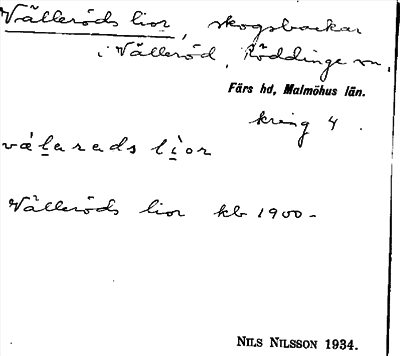 Välleröds lior, skogsbackar
i Välleröd, Röddinge sn,
Färs hd, Malmöhus län.
kring 4.
vál̠arads li̠or
Välleröds lior kb 1900-
NILS NILSSON 1934.